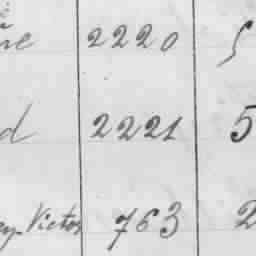 2220
d 2221 5
Victor 763 2